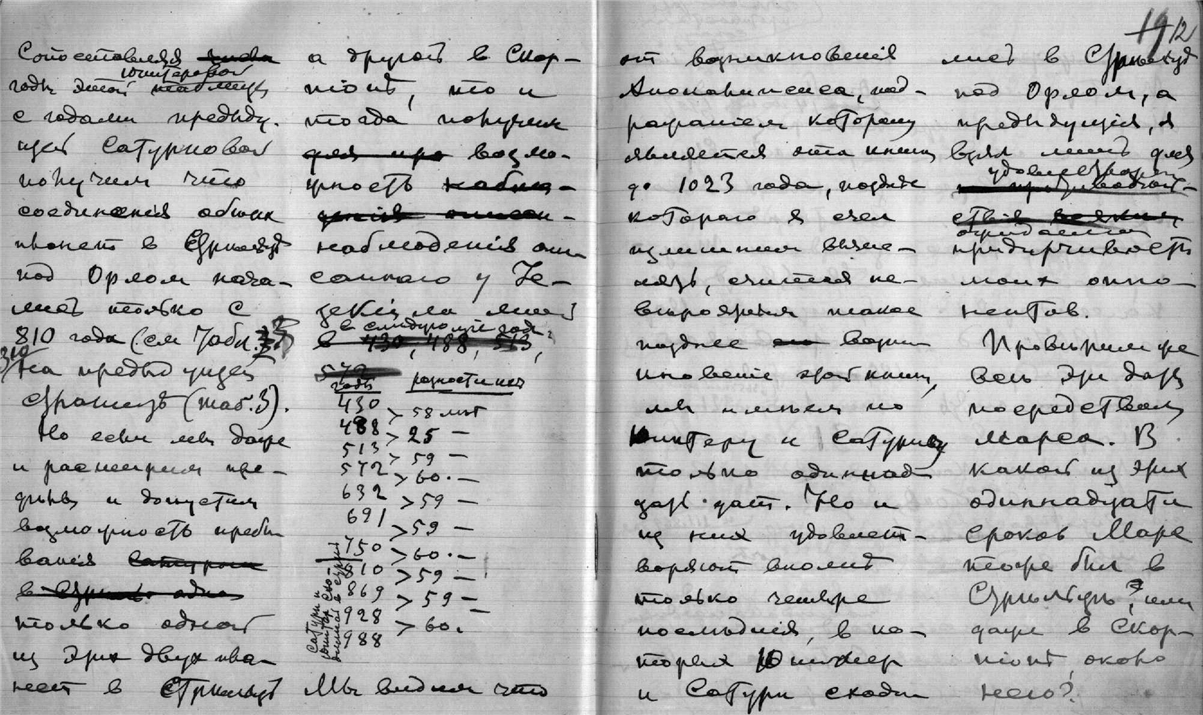 Сопоставляя
годы этой юпитеровой таблицы
с годами предыду-
щей Сатурновой
получим что
соединенія обоих
планет в Стрельце
под Орлом нача-
лись только с
810 года (см Табл.
на предыдущей
странице (таб. 3).
Но если мы даже
и расширим пре-
дѣлы и допустим
возможность пребы-
ванія сатурна
в
только одной
из этих двух пла-
нет в Стрельце
а другой в Скор-
піонѣ, то и
тогда получим
для возмо-
жность
наблюденія опи-
саннаго у Іе-
зекіила лишь
в следующіе годы
в 430, 488, 513,
572
годы разности их
430
> 58 лѣт
488
> 25 —
513
> 59 —
572
> 60 —
632
> 59 —
691
> 59 —
750
> 60 —
810
> 59 —
869
> 59 —
928
> 60
988
Сатурн и
Юпитер
Мы видим что
1912
от возникновенія
Апокалипсиса, под-
ражаніем которому
является эта книга
до 1023 года, позднѣе
котораго я счел
излишним вычис-
лять, считая не-
вѣроятным такое
позднее возни-
кновеніе этой книги,
мы имѣем по
Юпитеру и Сатурну
только одиннад-
дат. Но и
из них удовлет-
воряют вполнѣ
только четыре
послѣднія, в ко-
торыя Юпитер
и Сатурн сходи-
лись в Стрельце
под Орлом, а
предыдущія, я
взял лишь для
удовлетворенія
придирчивости
моих оппо-
нентов.
Провѣрим же
все эти даты
посредством
Марса. В
какой из этих
одиннадцати
сроков Марс
тоже был в
Стрельце, или
даже в Скор-
піонѣ около
него?